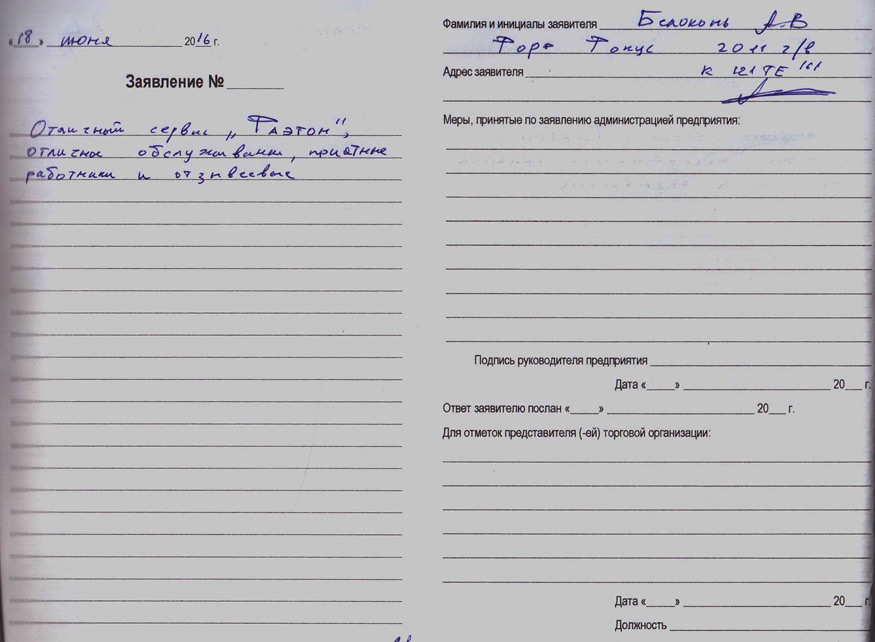 «18» июня 2016 г.
Заявление №
Отличный сервис „Фаэтон",
отличное обслуживание, приятные
работники и отзывчивые
Фамилия и инициалы заявителя Белоконь А.В
Форд Фокус 2011 г/в
Адрес заявителя
Меры, принятые по заявлению администрацией предприятия:
Подпись руководителя предприятия
Дата «_____» 20___ г.
Ответ заявителю послан «_____» 20___ г.
Для отметок представителя (-ей) торговой организации:
Дата «_____» 20___ г.
Должность